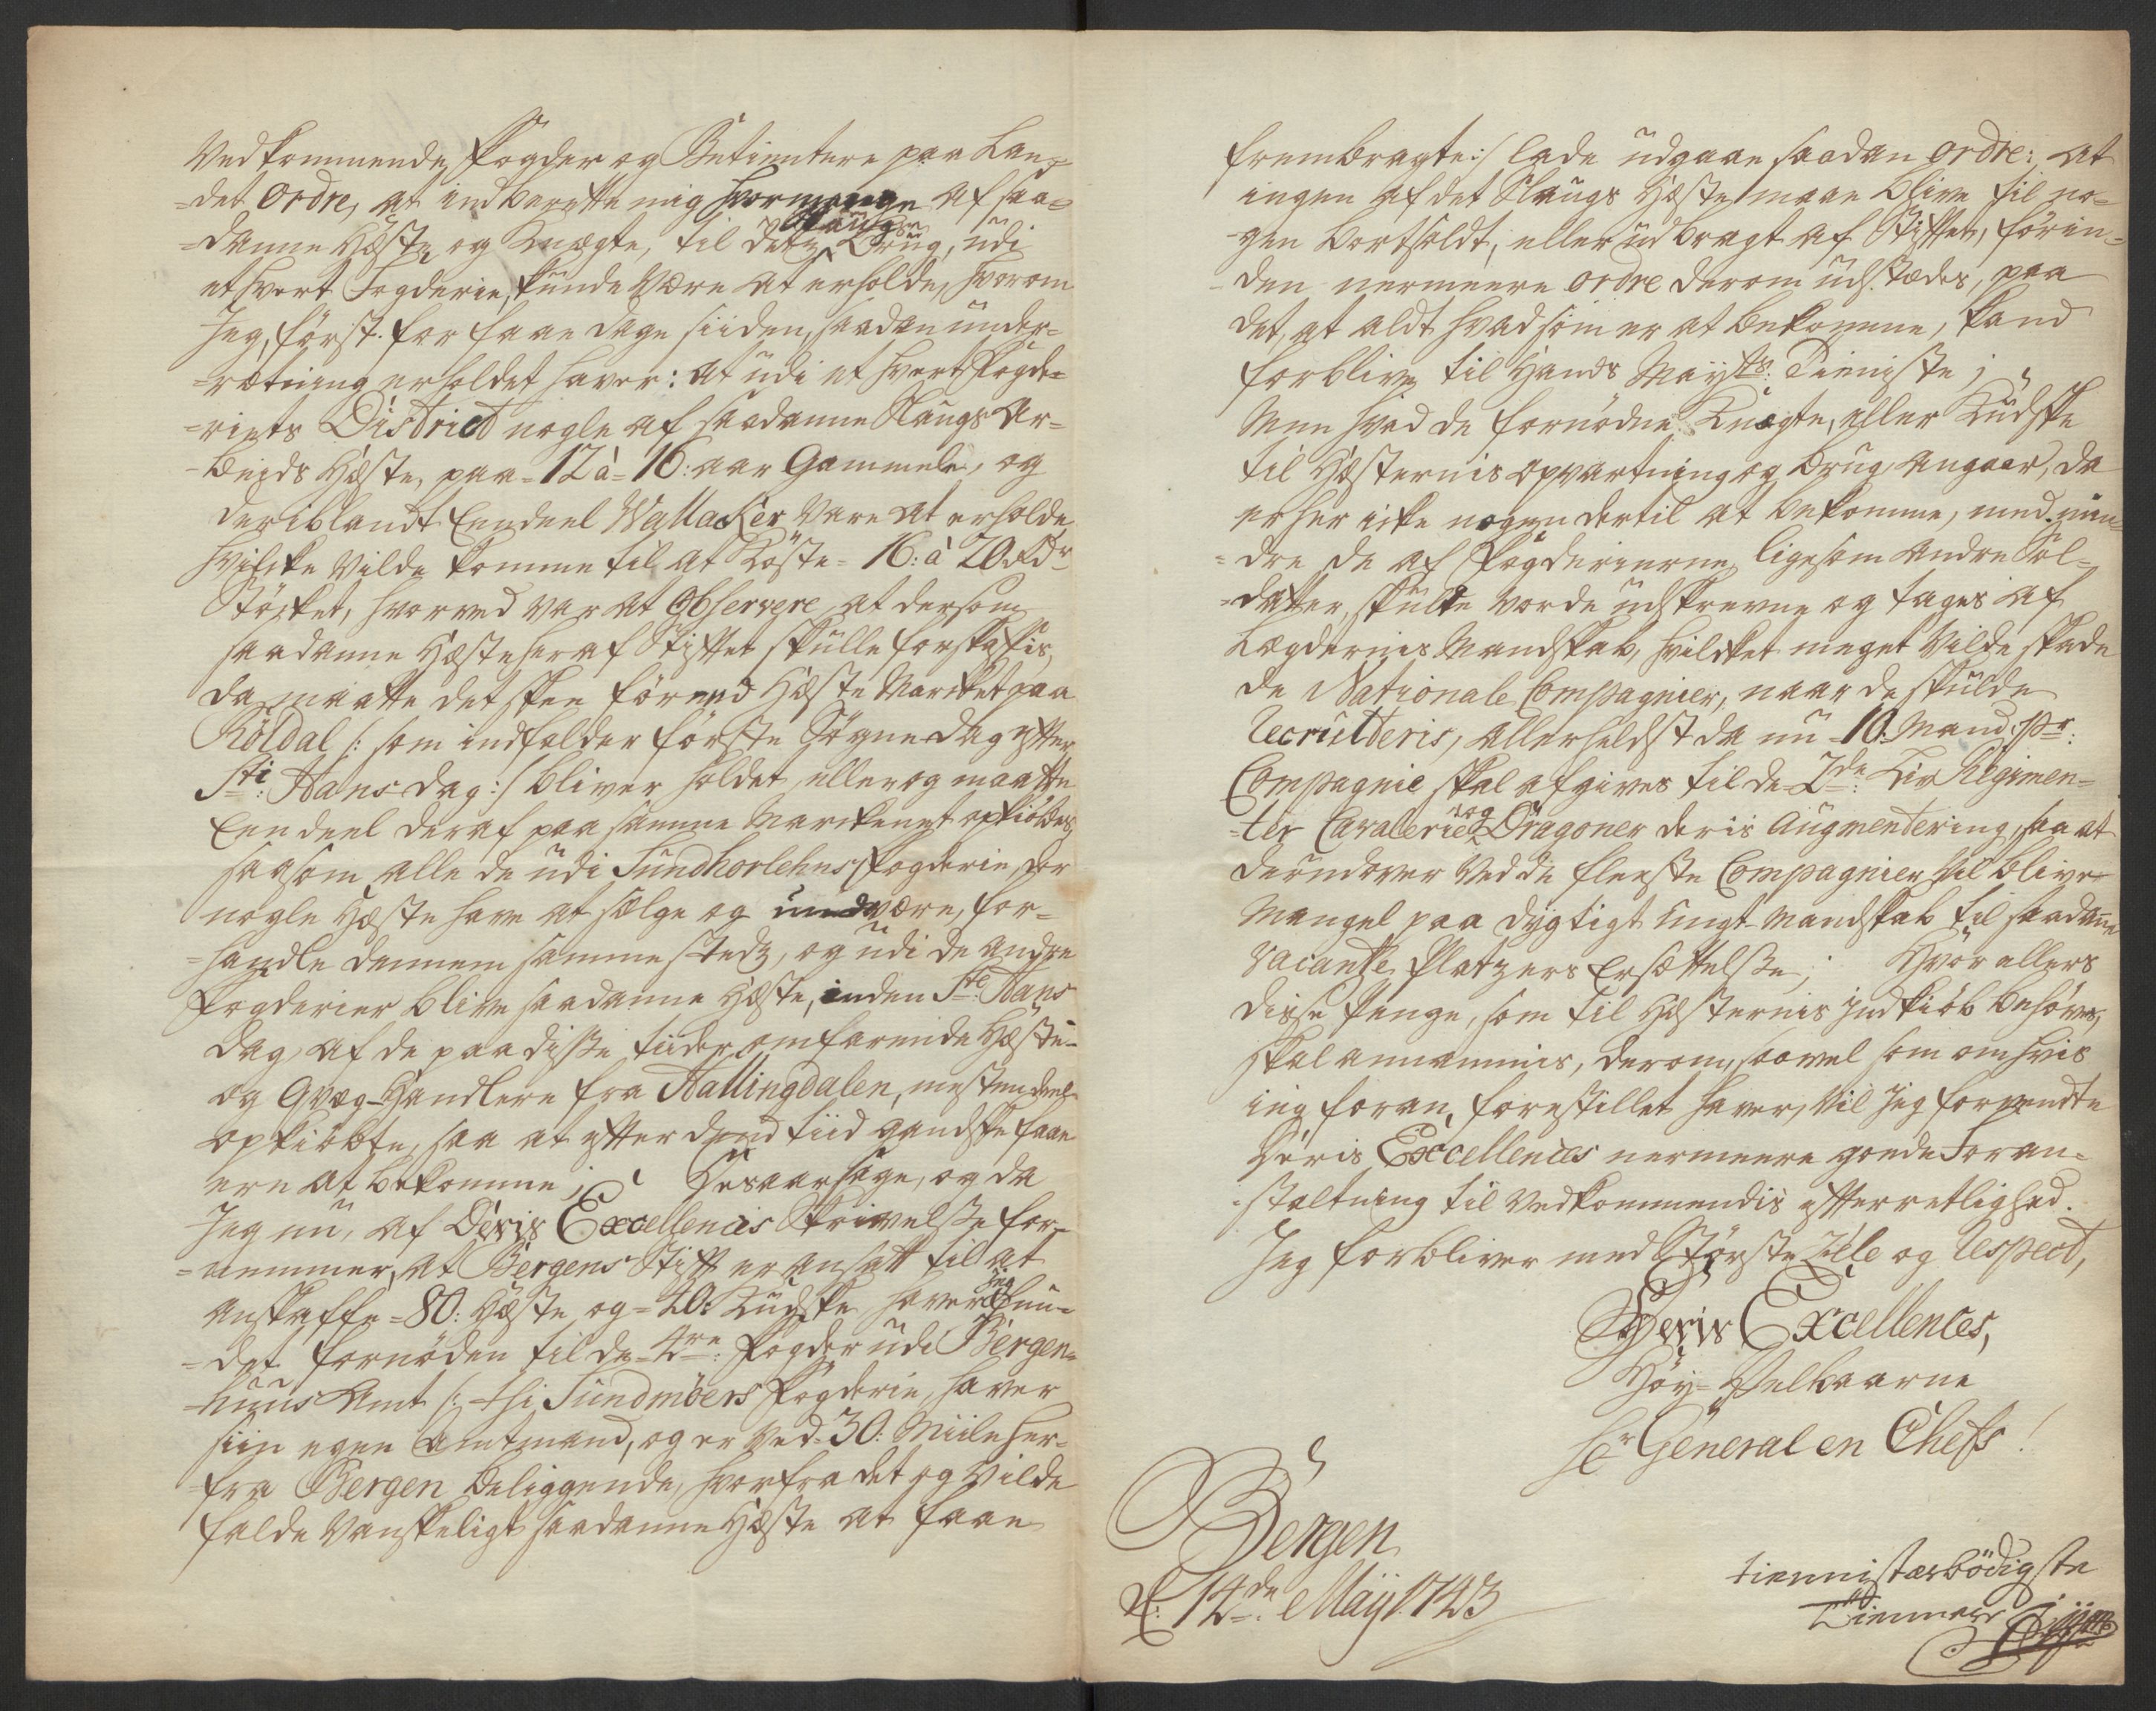 Vedkommende Fogder og Betientere paa Lan-
-det Ordre, at indberette mig hvormange af saa-
-danne Hæste og Knægte, til detz Brug, udi
et hvert Fogderie, kunde være at erholde, hvorom
Jeg, först for faae dage siiden, saadan under-
-retning erholdet haver: at udi et hvert Fogde-
-riets District nogle af saadanne Slaugs Ar-
-beids Hæste, paa 12 à 16: aar Gammele, og
deriblandt Eendeel Wallaker vare at erholde
hvilcke vilde komme til at Kóste 16: à 20 Rdr
Stöcket, hvorved var at Observere, at dersom
saadanne Hæste her af Stiftet skulle forskaffis,
da maatte det skee förend Hæste Marcket paa
Röldal /: som indfalder förste Sögne dag efter
Sti: Hans dag :/ bliver holdet, eller og maatte
Een deel deraf paa samme Marckenet opkiöbes,
saasom alle de udi Sundhorlehns Fogderie, der
nogle Hæste have at sælge og undvære, for-
-handle dennem sammestedz, og udi de andre
Fogderier blive saadanne Hæste, inden Ste: Hans
dag, af de paa disse tiider omfarende Hæste-
og Qvæg-Handlere fra Hallingdalen, mestendeel
opkiöbte, saa at efter dend tiid gandske faae
ere at bekomme; Desaarsage, og da
Jeg nu, af Deris Excellences Skrivelsse for-
-nemmer, at Bergens Stift er ansatt til at
anskaffe 80: Hæste og 40: Kudske haver jeg fun-
-det fornöden til de 4re: Fogder udi Bergen-
-huus Amt /: thi Sundmöers Fogderie, haver
siin egen Amtmand, og er ved 30: Miile her-
-fra Bergen beliggende, hvorfra det og vilde
falde vanskeligt saadanne Hæste at faae
frembragte :/ lade udgaae saadan Ordre: at
ingen af det Slaugs Hæste maae blive til no-
-gen bortsoldt, eller udbragt af Stiftet, förin-
-den nermere ordre derom udstædes, paa
det, at aldt hvad som er at bekomme, kand
forblive til Hands Mayts: Tieniste;
Men hvad de fornödne Knægte, eller Kudske
til Hæsternis opvartning og brug angaar, da
er her icke nogen dertil at bekomme, med min-
-dre de af Fogderierne, ligesom andre Sol-
-datter, skulle vorde udskrevne og tages af
Lægdernis Mandskab, hvildket meget vilde skade
de Nationale Compagnier, naar de skulde
recruteris, allerhelst da nu 10: Mand pr:
Compagnie skal afgives til de 2de: Liv Regimen-
-ter Cavalerie og Dragoner deris Augmentering, saa at
derudover ved de fleeste Compagnier vil blive
Mangel paa dygtigt ungt Mandskab til saadanne
vacante Platzers Ersættelsse; Hvor ellers
disse Penge, som til Hæsternis Jndkiöb behöves,
skal annammis, derom, saavel som om hvis
jeg foran, forestillet haver, vil jeg forvendte
Deris Excellences nermere goede Foran-
-staltning til vedkommendis efterretlighed.
Jeg forbliver med Störste Zéle og respect,
Deris Excellences,
Höy-Velbaarne
Hr General en Chefs!
Bergen
d: 14de: Maij 1743
tiennistærbödigste
Tiennere